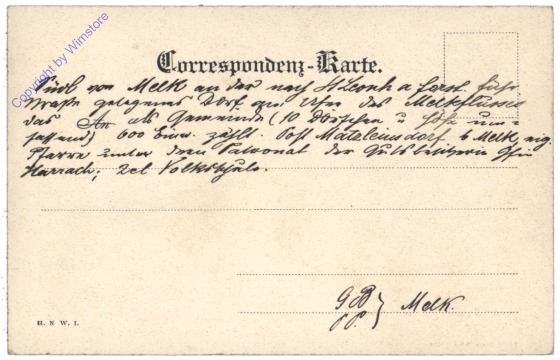 Correspondenz-Karte.
Südl von Melk an der nach St Leonh a Forst. führ
Straße gelegenes Dorf am Ufer des Melkflusses
das als Gemeinde (10 Dörfchen u
fassend) 600 Einw. zählt. Post Matzleinsdorf b Melk, eig.
Pfarre unter dem Patronat der Gutsbesitzerin Gfin
Harrach; 2cl Volksschule.
G B } Melk.
H. N W. I.
Copyright by Wimstore